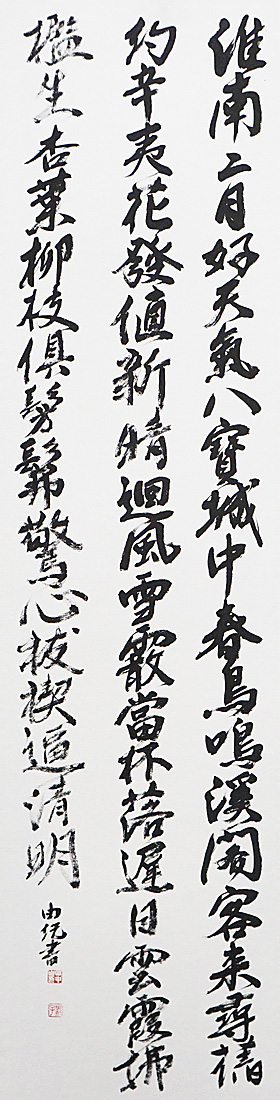 淮南二月好天氣八寶城中春鳥鳴溪閣客来尋舊
約辛夷花發值新晴迴風雪霰當杯落遲日雲霞拂
檻生杏葉柳枝俱髣髴驚心祓禊逼清明